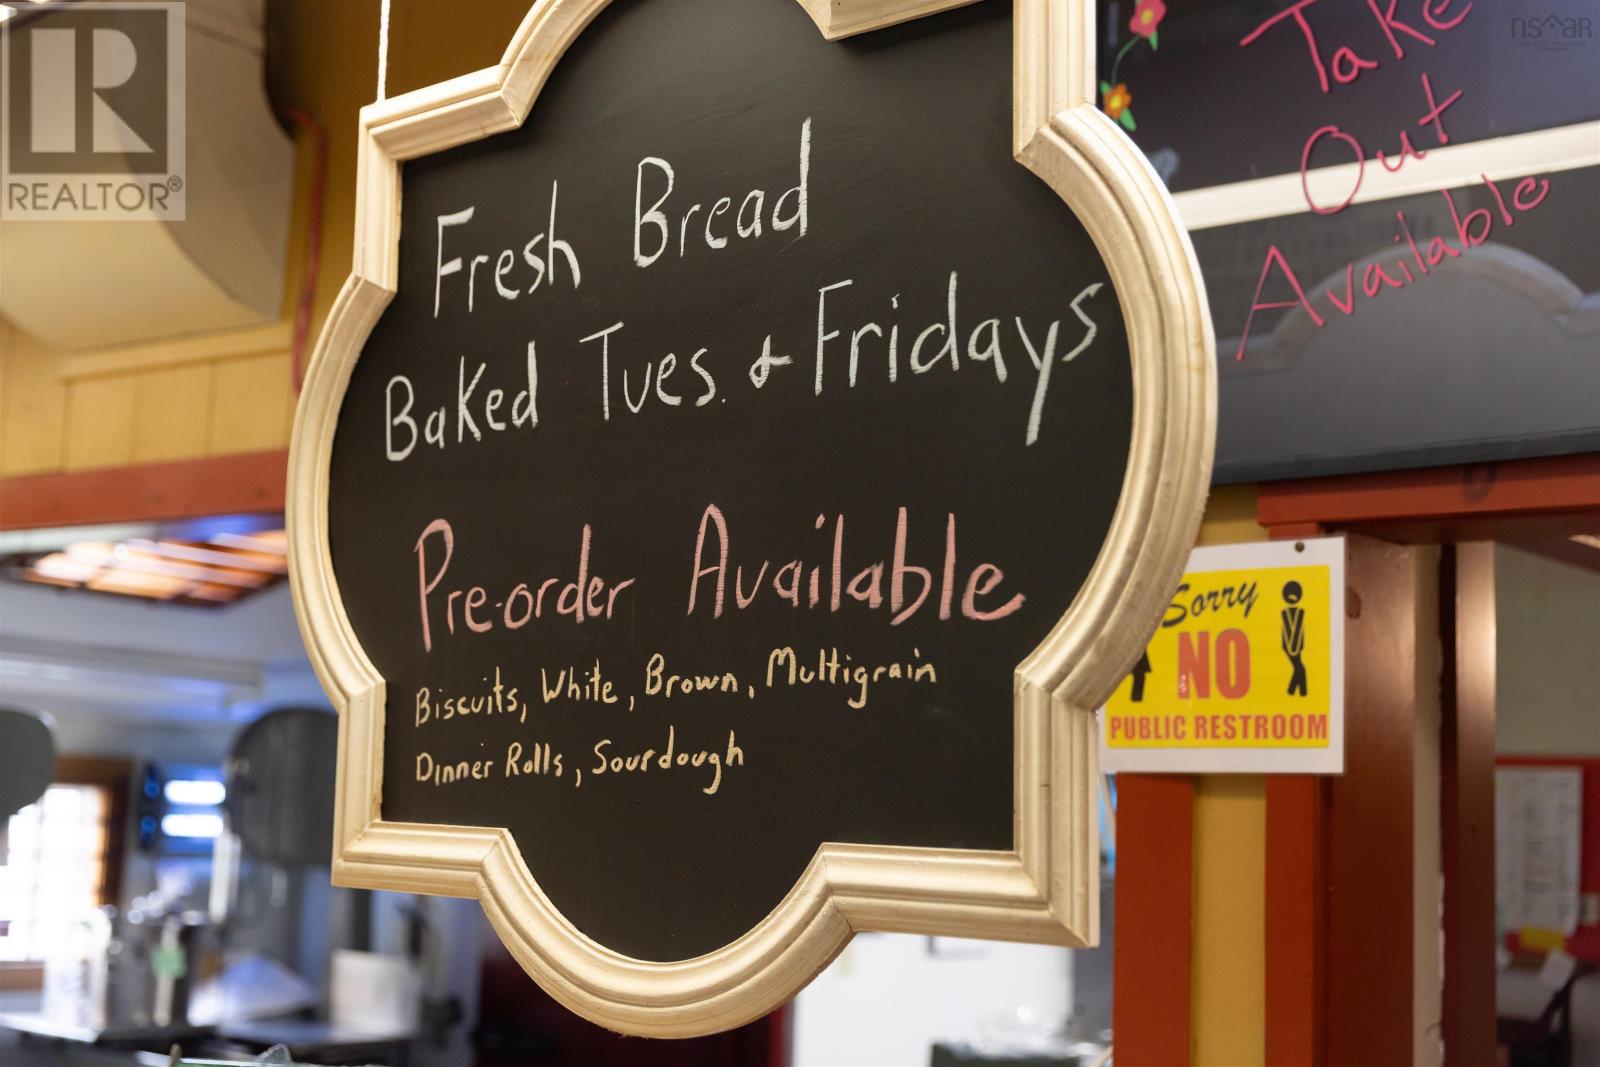 REALTOR®
nsaar
Fresh Bread
Baked Tues. & Fridays
Pre-order Available
Biscuits, White, Brown, Multigrain
Dinner Rolls, Sourdough
Take
Out
Available
Sorry
NO
PUBLIC RESTROOM